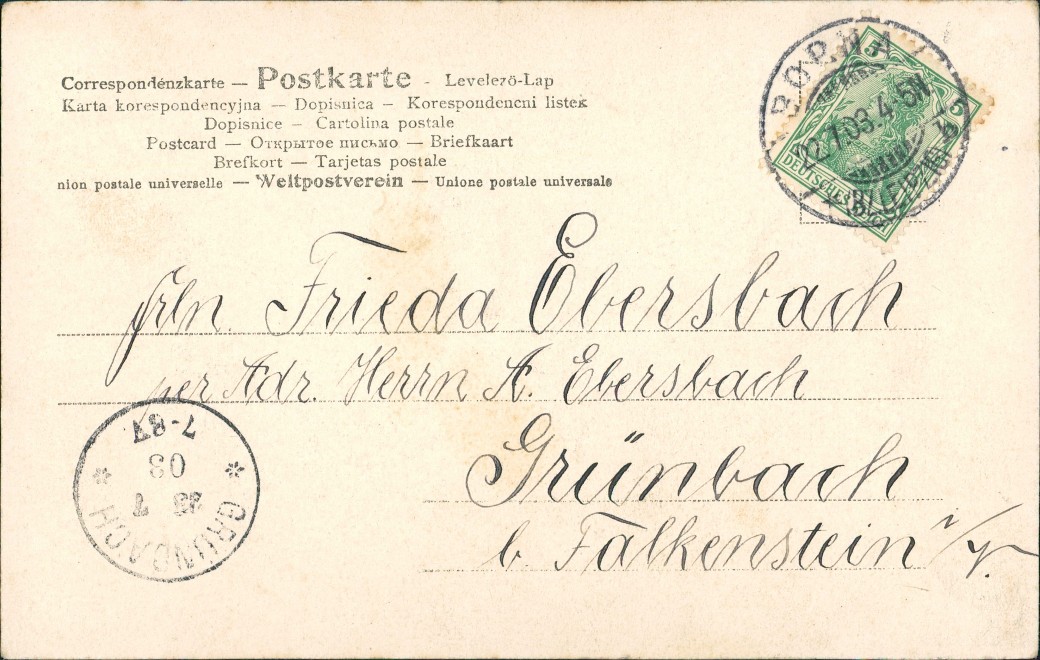 Correspondenzkarte — Postkarte - Levelező-Lap
Karta korespondencyjna — Dopisnica — Korespondencni listek
Dopisnice — Cartolina postale
Postcard — Открытое письмо — Briefkaart
Brefkort — Tarjetas postale
nion postale universelle — Weltpostverein — Unione postale universale
BORNA
22.7.03.4-5N
BZ. LEIPZIG
5 5
DEUTSCHES
Frln. Frieda Ebersbach
per Adr. Herrn A. Ebersbach
Grünbach
b. Falkenstein i/V.
GRÜNBACH
03
7-8V